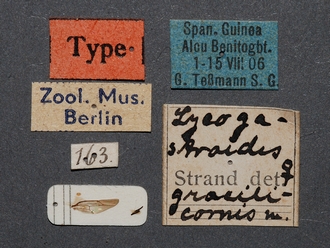 Type
Span. Guinea
Alcu Benitogbt.
1-15 VII. 06
G. Teßmann S. G.
Zool. Mus.
Berlin
163.
Lycoga-
stroides
♀
Strand det.
gracili-
cornis m.